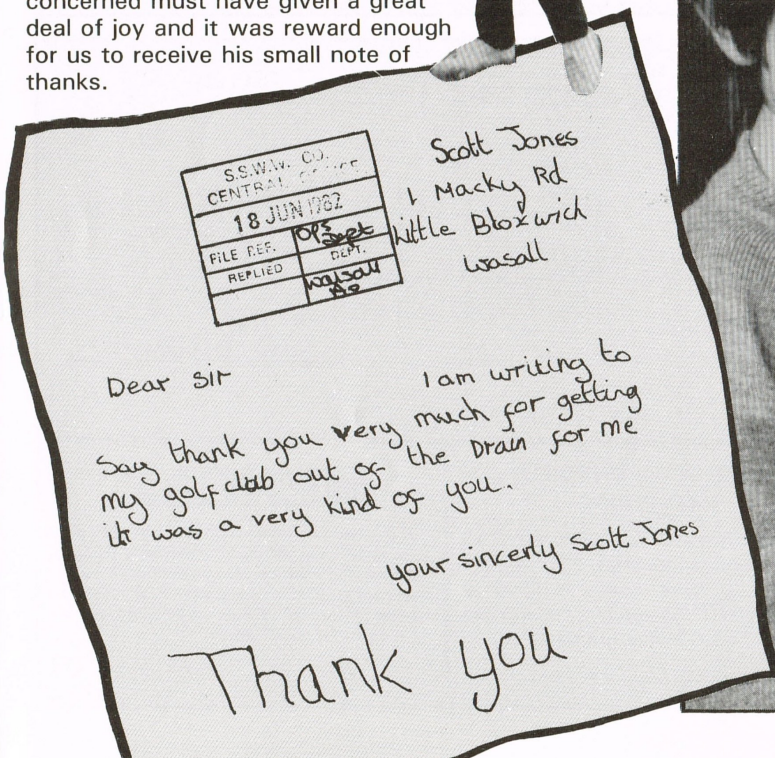 concerned must have given a great
deal of joy and it was reward enough
for us to receive his small note of
thanks.
S.S.W.W. CO.
CENTRAL OFFICE
18 JUN 1982
FILE REF. Ops Dept
REPLIED DEPT.
Walsall
Scott Jones
1 Macky Rd
Little Bloxwich
wasall
Dear Sir
I am writing to
Say thank you very much for getting
my golf club out of the Drain for me
it was a very kind of you.
your sincerly Scott Jones
Thank you